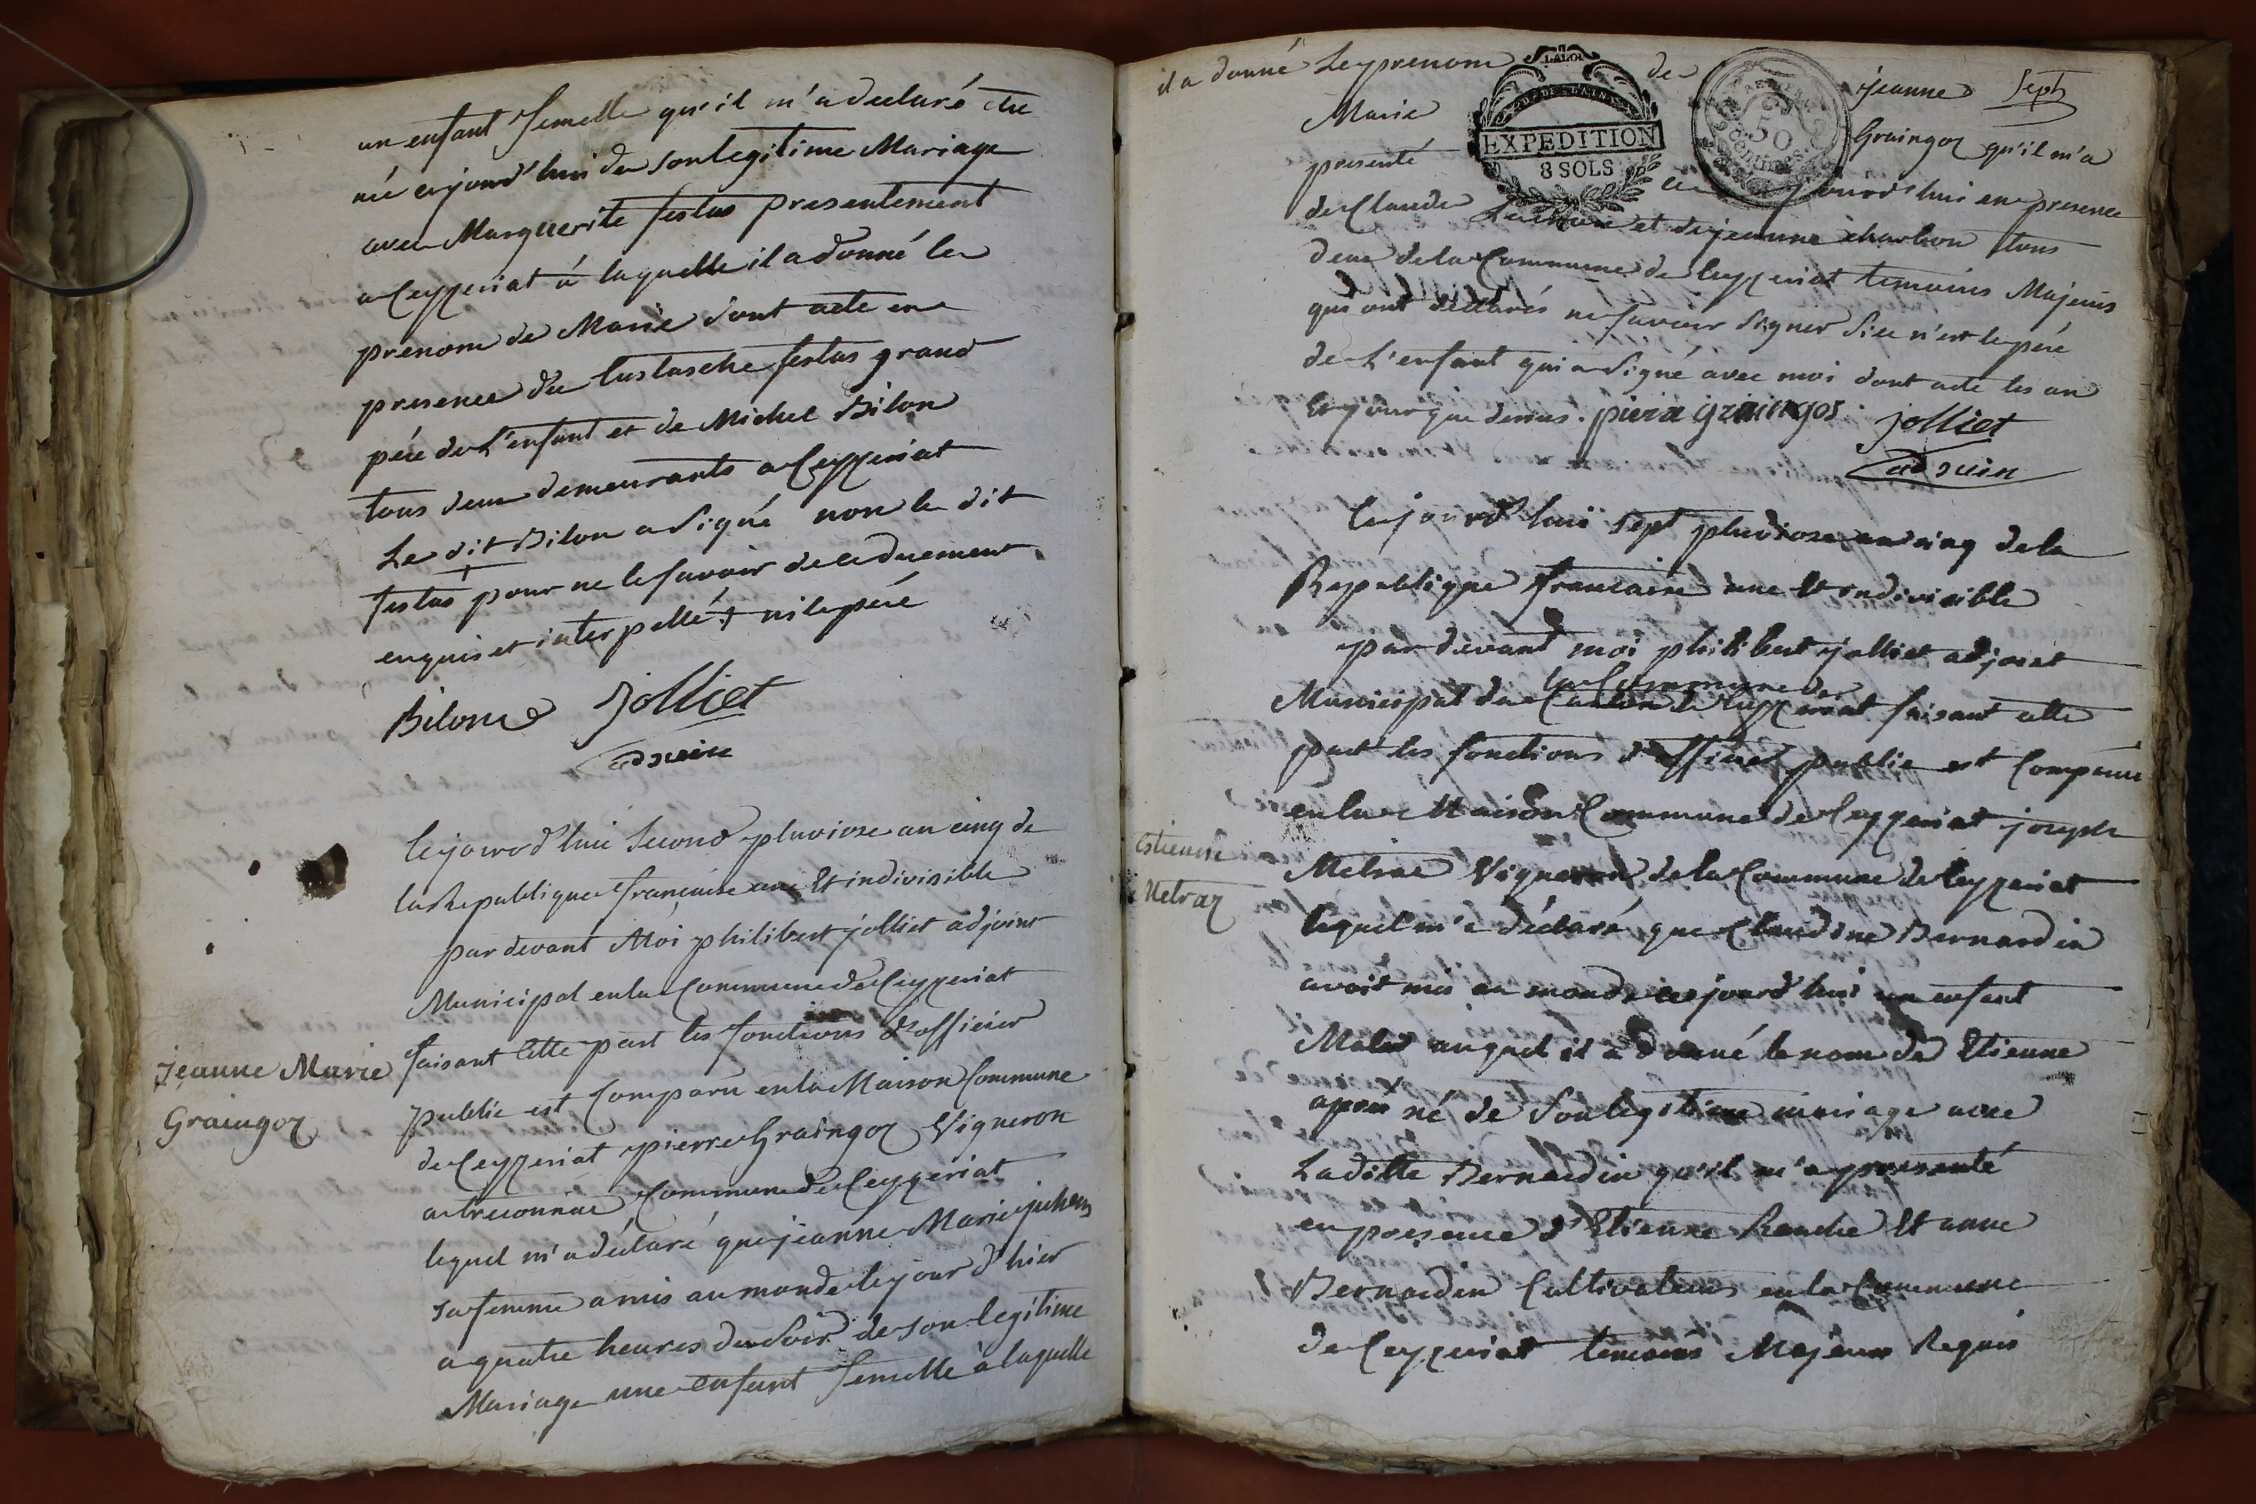 un enfant femelle qu'il m'a declaré etre
née cejourd'hui de son legitime Mariage
avec Marguerite festas presentement
a Ceyzeriat a laquelle il a donné le
prenom de Marie dont acte en
presence de Eustasche festas grand
pére de l'enfant et de Michel Bilon
tous deux demeurants a Ceyzeriat
Le dit Bilon a Signé non le dit
festas pour ne le savoir de ce duement
enquis et interpellé ni le pére
Bilon jolliet
adjoin
Cejourd'hui Second pluviose an cinq de
la Republique francaise une Et indivisible
par devant Moi philibert jolliet adjoint
Municipal en la Commune de Ceyzeriat
faisant Cette part les fonctions d'officier
public est Comparu en la Maison Commune
de Ceyzeriat pierre Graingoz Vigneron
a treconnas Commune de Ceyzeriat
lequel m'a déclaré que jeanne Marie
sa femme a mis au monde le jour d'hier
a quatre heures du Soir de son legitime
Mariage une enfant femelle a laquelle
jeanne Marie
Graingoz
il a donné Le prenom de jeanne Sept
LA LOI
EXPEDITION
8 SOLS
50
Centimes
Marie Graingoz qu'il m'a
presenté cejourd'hui en presence
de Claude et de jeanne charbon tous
deux de la Commune de Ceyzeriat temoins Majeurs
qui ont déclarés ne savoir Signer Si ce n'est le pére
de L'enfant qui a Signé avec moi dont acte les an
Et jour que dessus. piere graingos jolliet
adjoin
Cejourd'hui Sept pluviose an cinq de la
Republique francaise une Et indivisible
par devant moi philibert jolliet adjoint
la Commune de
Municipal de Ceyzeriat faisant cette
part les fonctions d'officier public est Comparu
en la Maison Commune de Ceyzeriat joseph
Metras Vigneron de la Commune de Ceyzeriat
lequel m'a déclaré que Claudine Bernardin
avoit mis au monde cejourd'hui un enfant
Male auquel il a donné le nom de Etienne
né de Son legitime mariage avec
Laditte Bernardin qu'il m'a presenté
en presence d'Etienne Et anne
Bernardin Cultivateurs en la Commune
de Ceyzeriat temoins Majeurs Requis
Estienne
Metraz